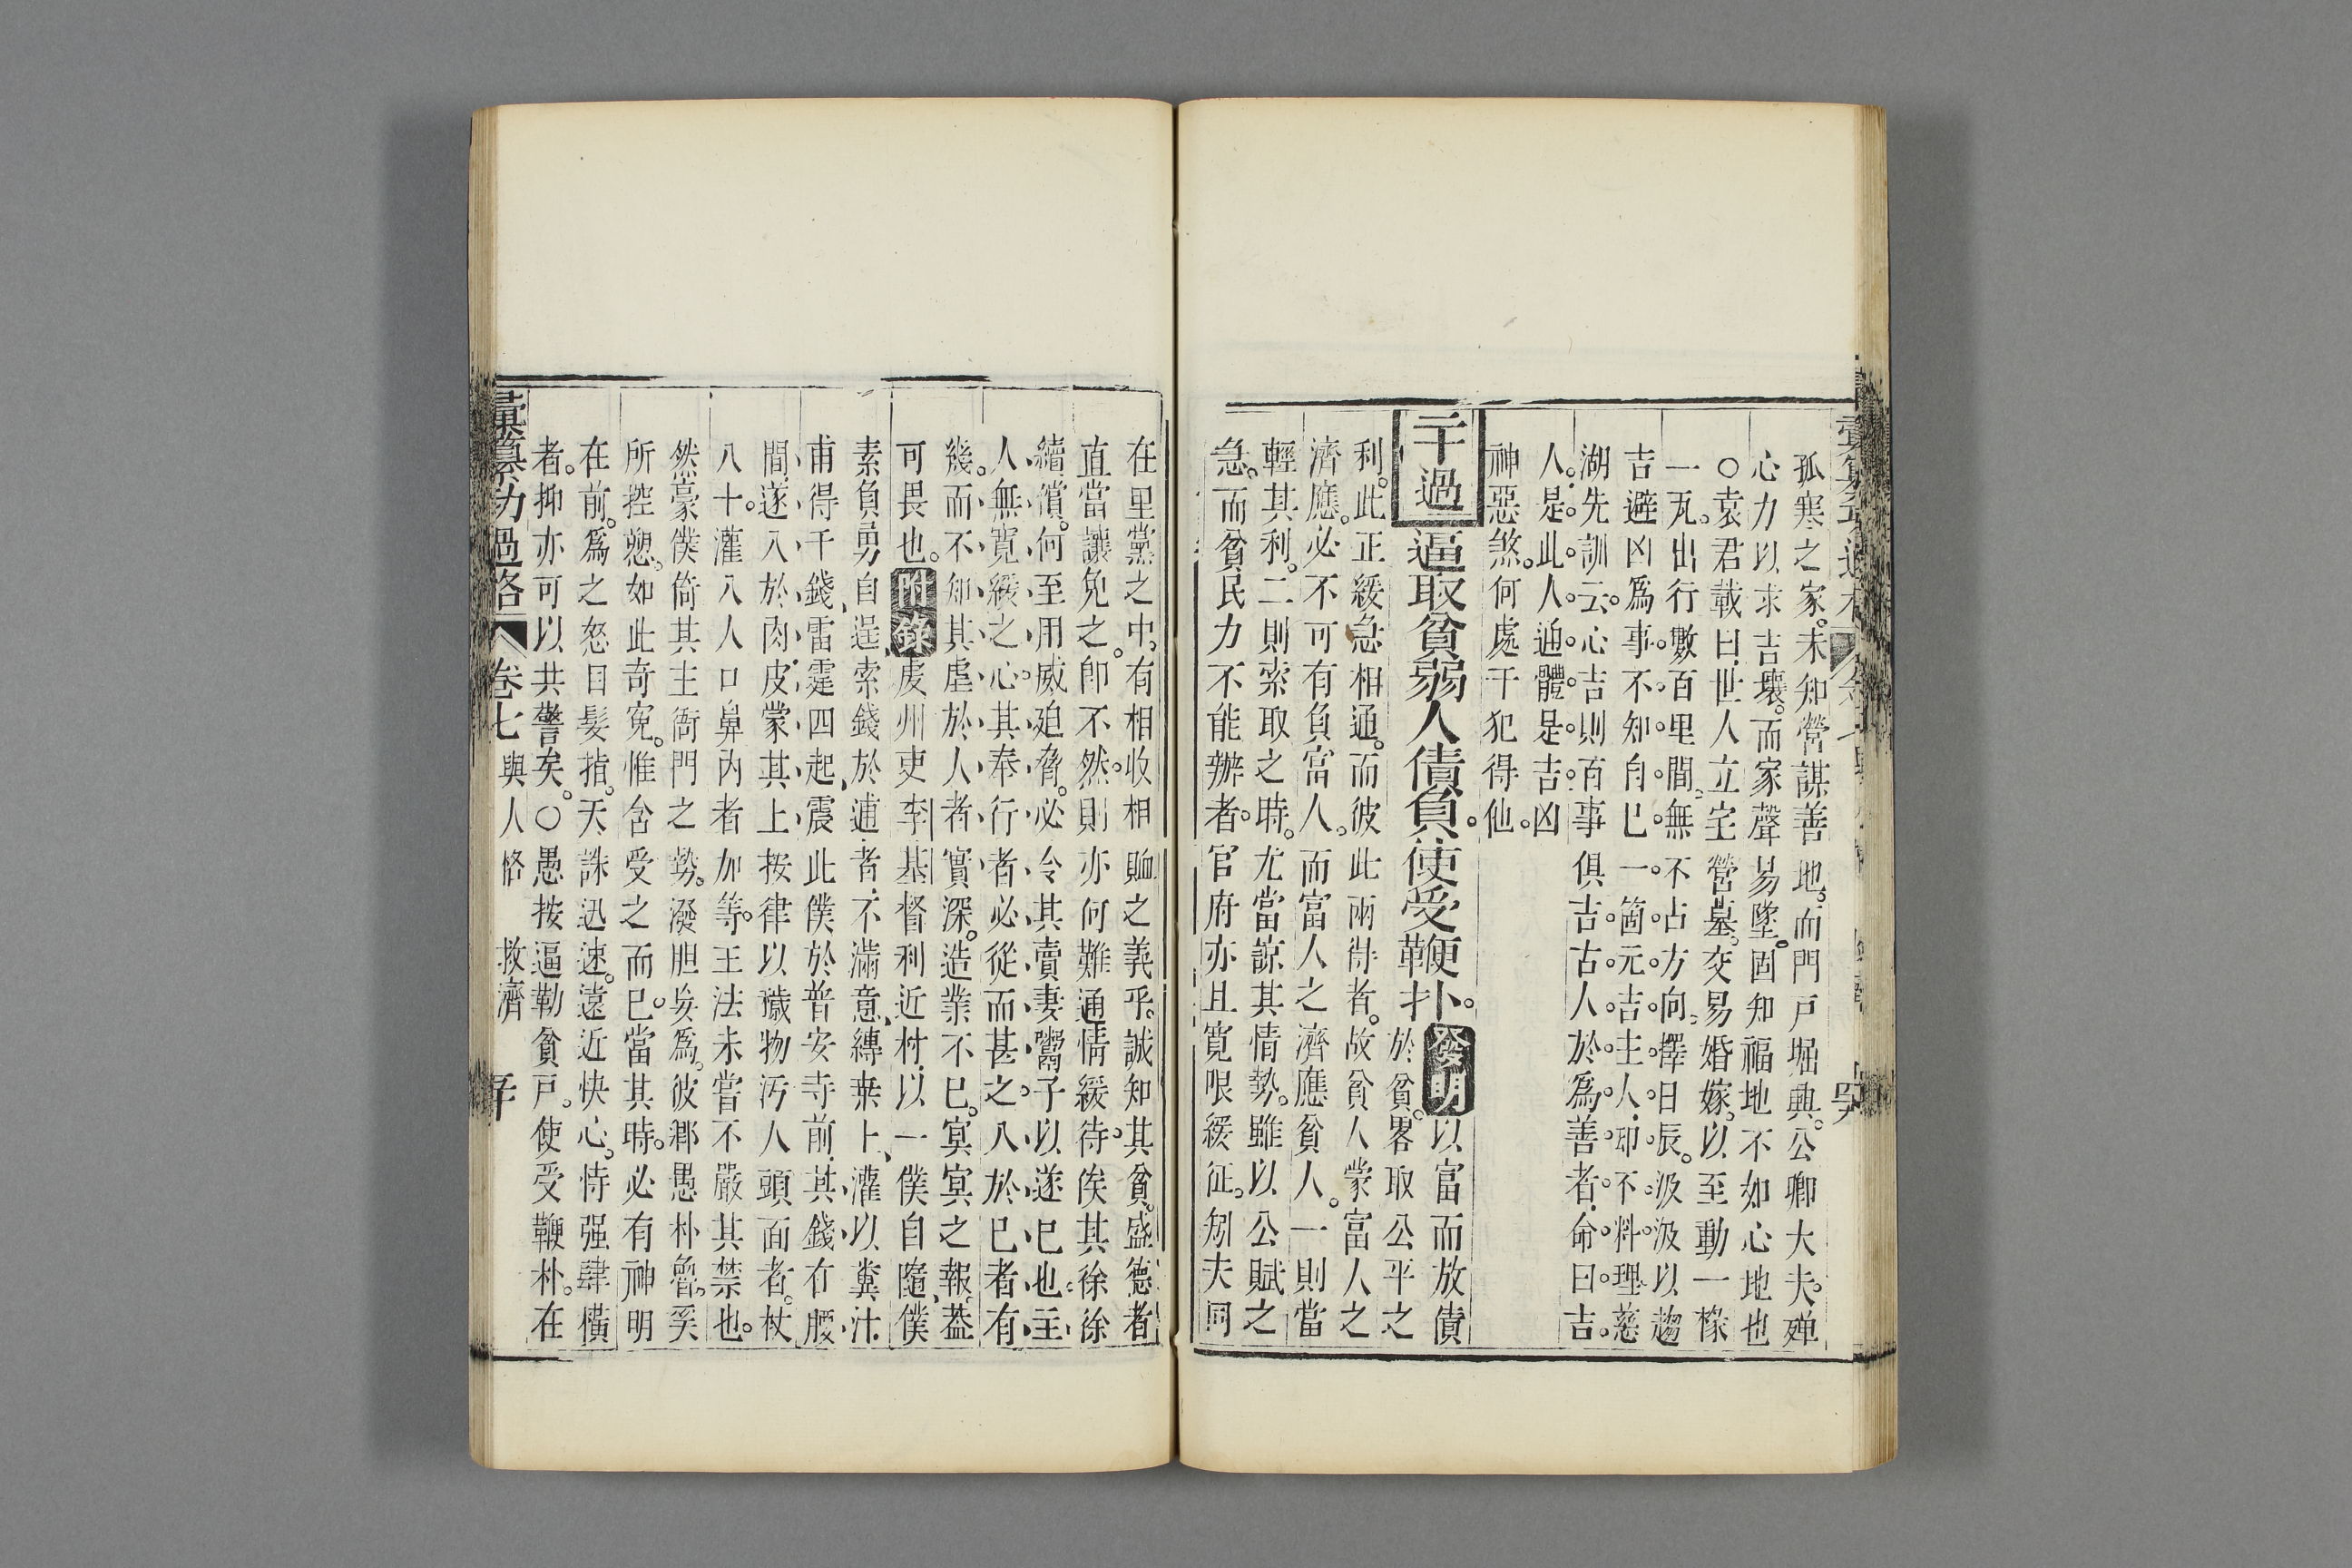 孤寒之家。未知營謀善地。而門戸堀興。公卿大夫。殫
心力以求吉壤。而家聲易墜。固知福地不如心地也
○袁君載曰。世人立宅營墓。交易婚嫁。以至動一椽
一瓦。出行數百里間。無不占方向。擇日辰。汲汲以趨
吉避凶爲事。不知自已一箇元吉主人。却不料理。慈
湖先訓云。心吉則百事俱吉。古人於爲善者。命曰吉
人。是此人通體是吉。凶
神惡煞。何處干犯得他。
二千過
逼取貧弱人債負。使受鞭扑。
發明
以富而放債
於貧。畧取公平之
利。此正緩急相通。而彼此兩得者。故貧人蒙富人之
濟應。必不可有負富人。而富人之濟應貧人。一則當
輕其利。二則索取之時。尤當諒其情勢。雖以公賦之
急。而貧民力不能辦者。官府亦且寬限緩征。矧夫同
在里黨之中。有相收相賙之義乎。誠知其貧。盛德者
直當讓免之。卽不然。則亦何難通情緩待。俟其徐徐
續償。何至用威廹脅。必令其賣妻鬻子以遂巳也。主
人無寬緩之心。其奉行者必從而甚之。入於巳者有
幾。而不知其虐於人者實深。造業不已。冥冥之報。葢
可畏也。
附錄
虔州吏李基督利近村。以一僕自隨。僕
素負勇。自逞索錢於逋者。不滿意。縛桒上。灌以糞汁。
甫得千錢。雷霆四起。震此僕於普安寺前。其錢在腰
間。遂入於肉。皮蒙其上。按律以穢物汚人頭面者。杖
八十。灌入人口鼻内者加等。王法未嘗不嚴其禁也。
然豪僕倚其主衙門之勢。潑胆妄爲。彼鄉愚朴魯。奚
所控愬。如此竒寃。惟含受之而已。當其時。必有神明
在前。爲之怒目髮指。天誅迅速。遠近快心。恃强肆橫
者。抑亦可以共警矣。○愚按逼勒貧戸。使受鞭朴。在
彙纂功過格
卷七
與人格
救濟